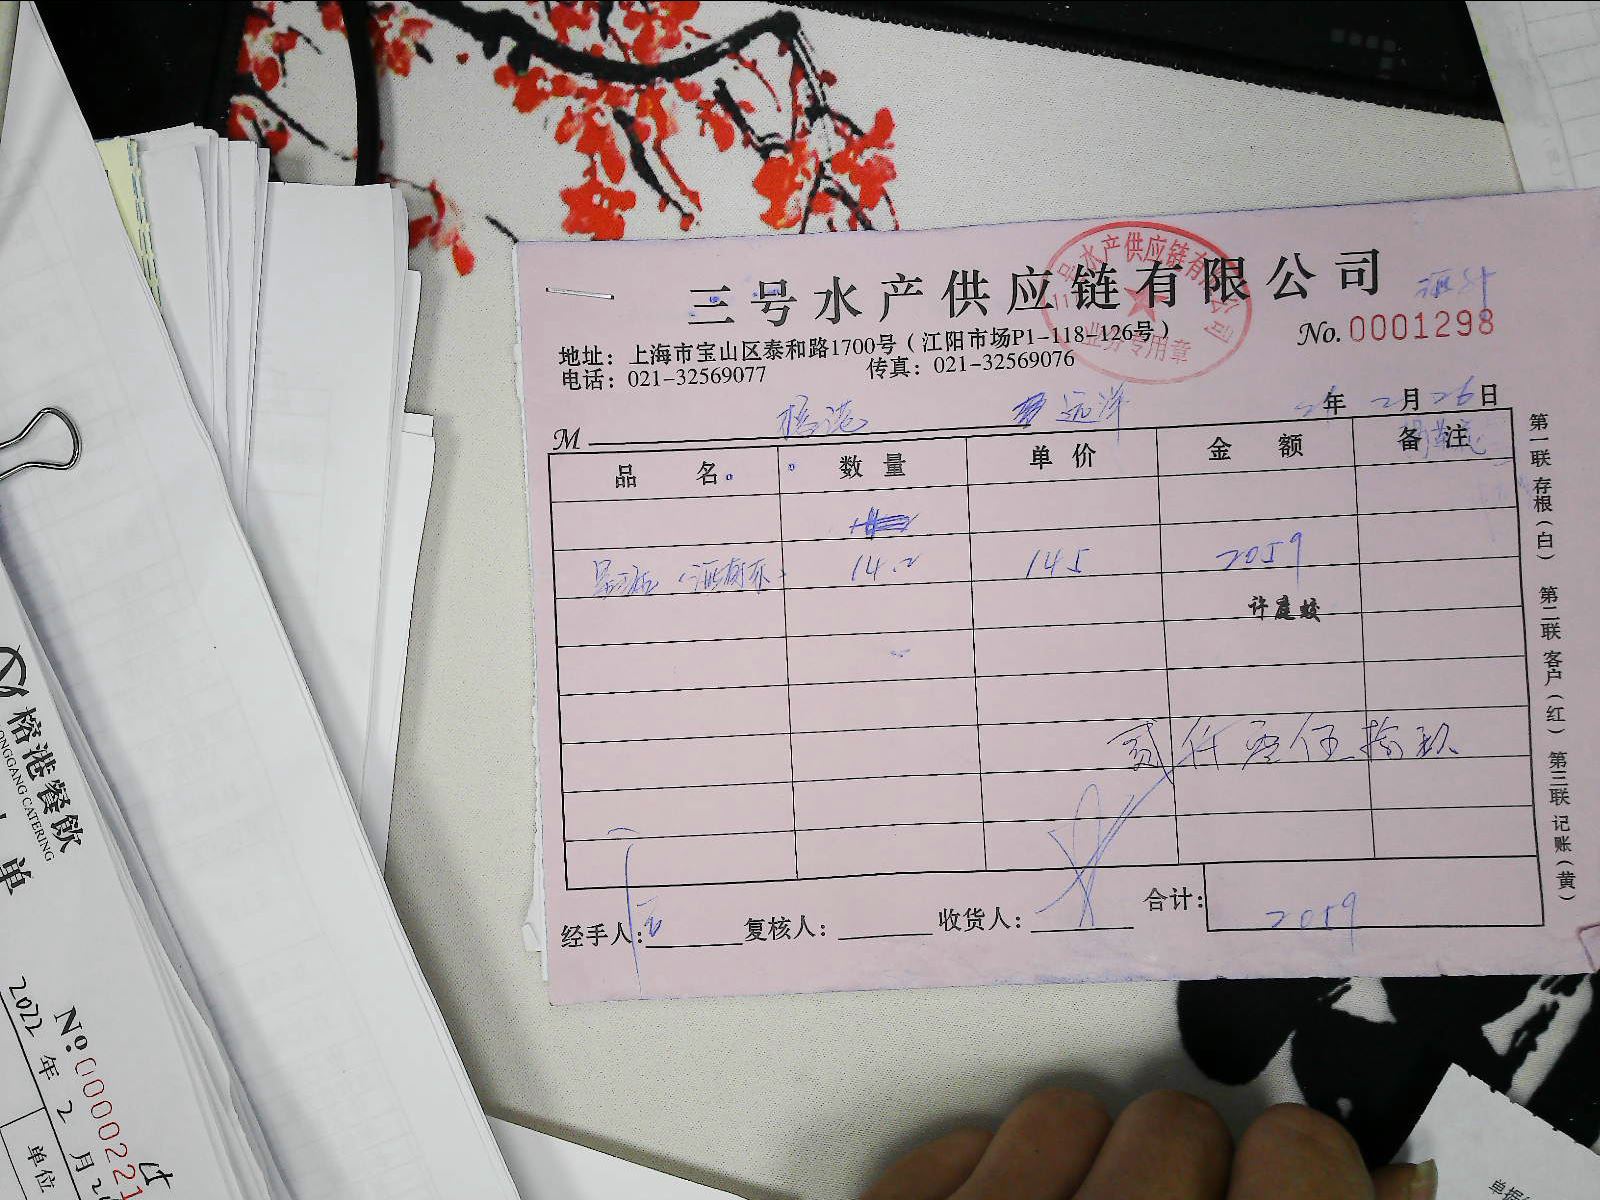 三号水产供应链有限公司
号水产供应链有限公司
业务专用章
No. 0001298
地址：上海市宝山区泰和路1700号（江阳市场P1-118 126号）
电话：021-32569077 传真：021-32569076
榕港 远洋
M 年 2月26日
品名 数量 单价 金额 备注
14.2 145 2059
许庭蛟
贰仟零伍拾玖
经手人： 复核人： 收货人： 合计：2059
第一联 存根（白） 第二联 客户（红） 第三联 记账（黄）
榕港餐飲
ONGGANG CATERING
单
No. 0000221
2022年2月
单位